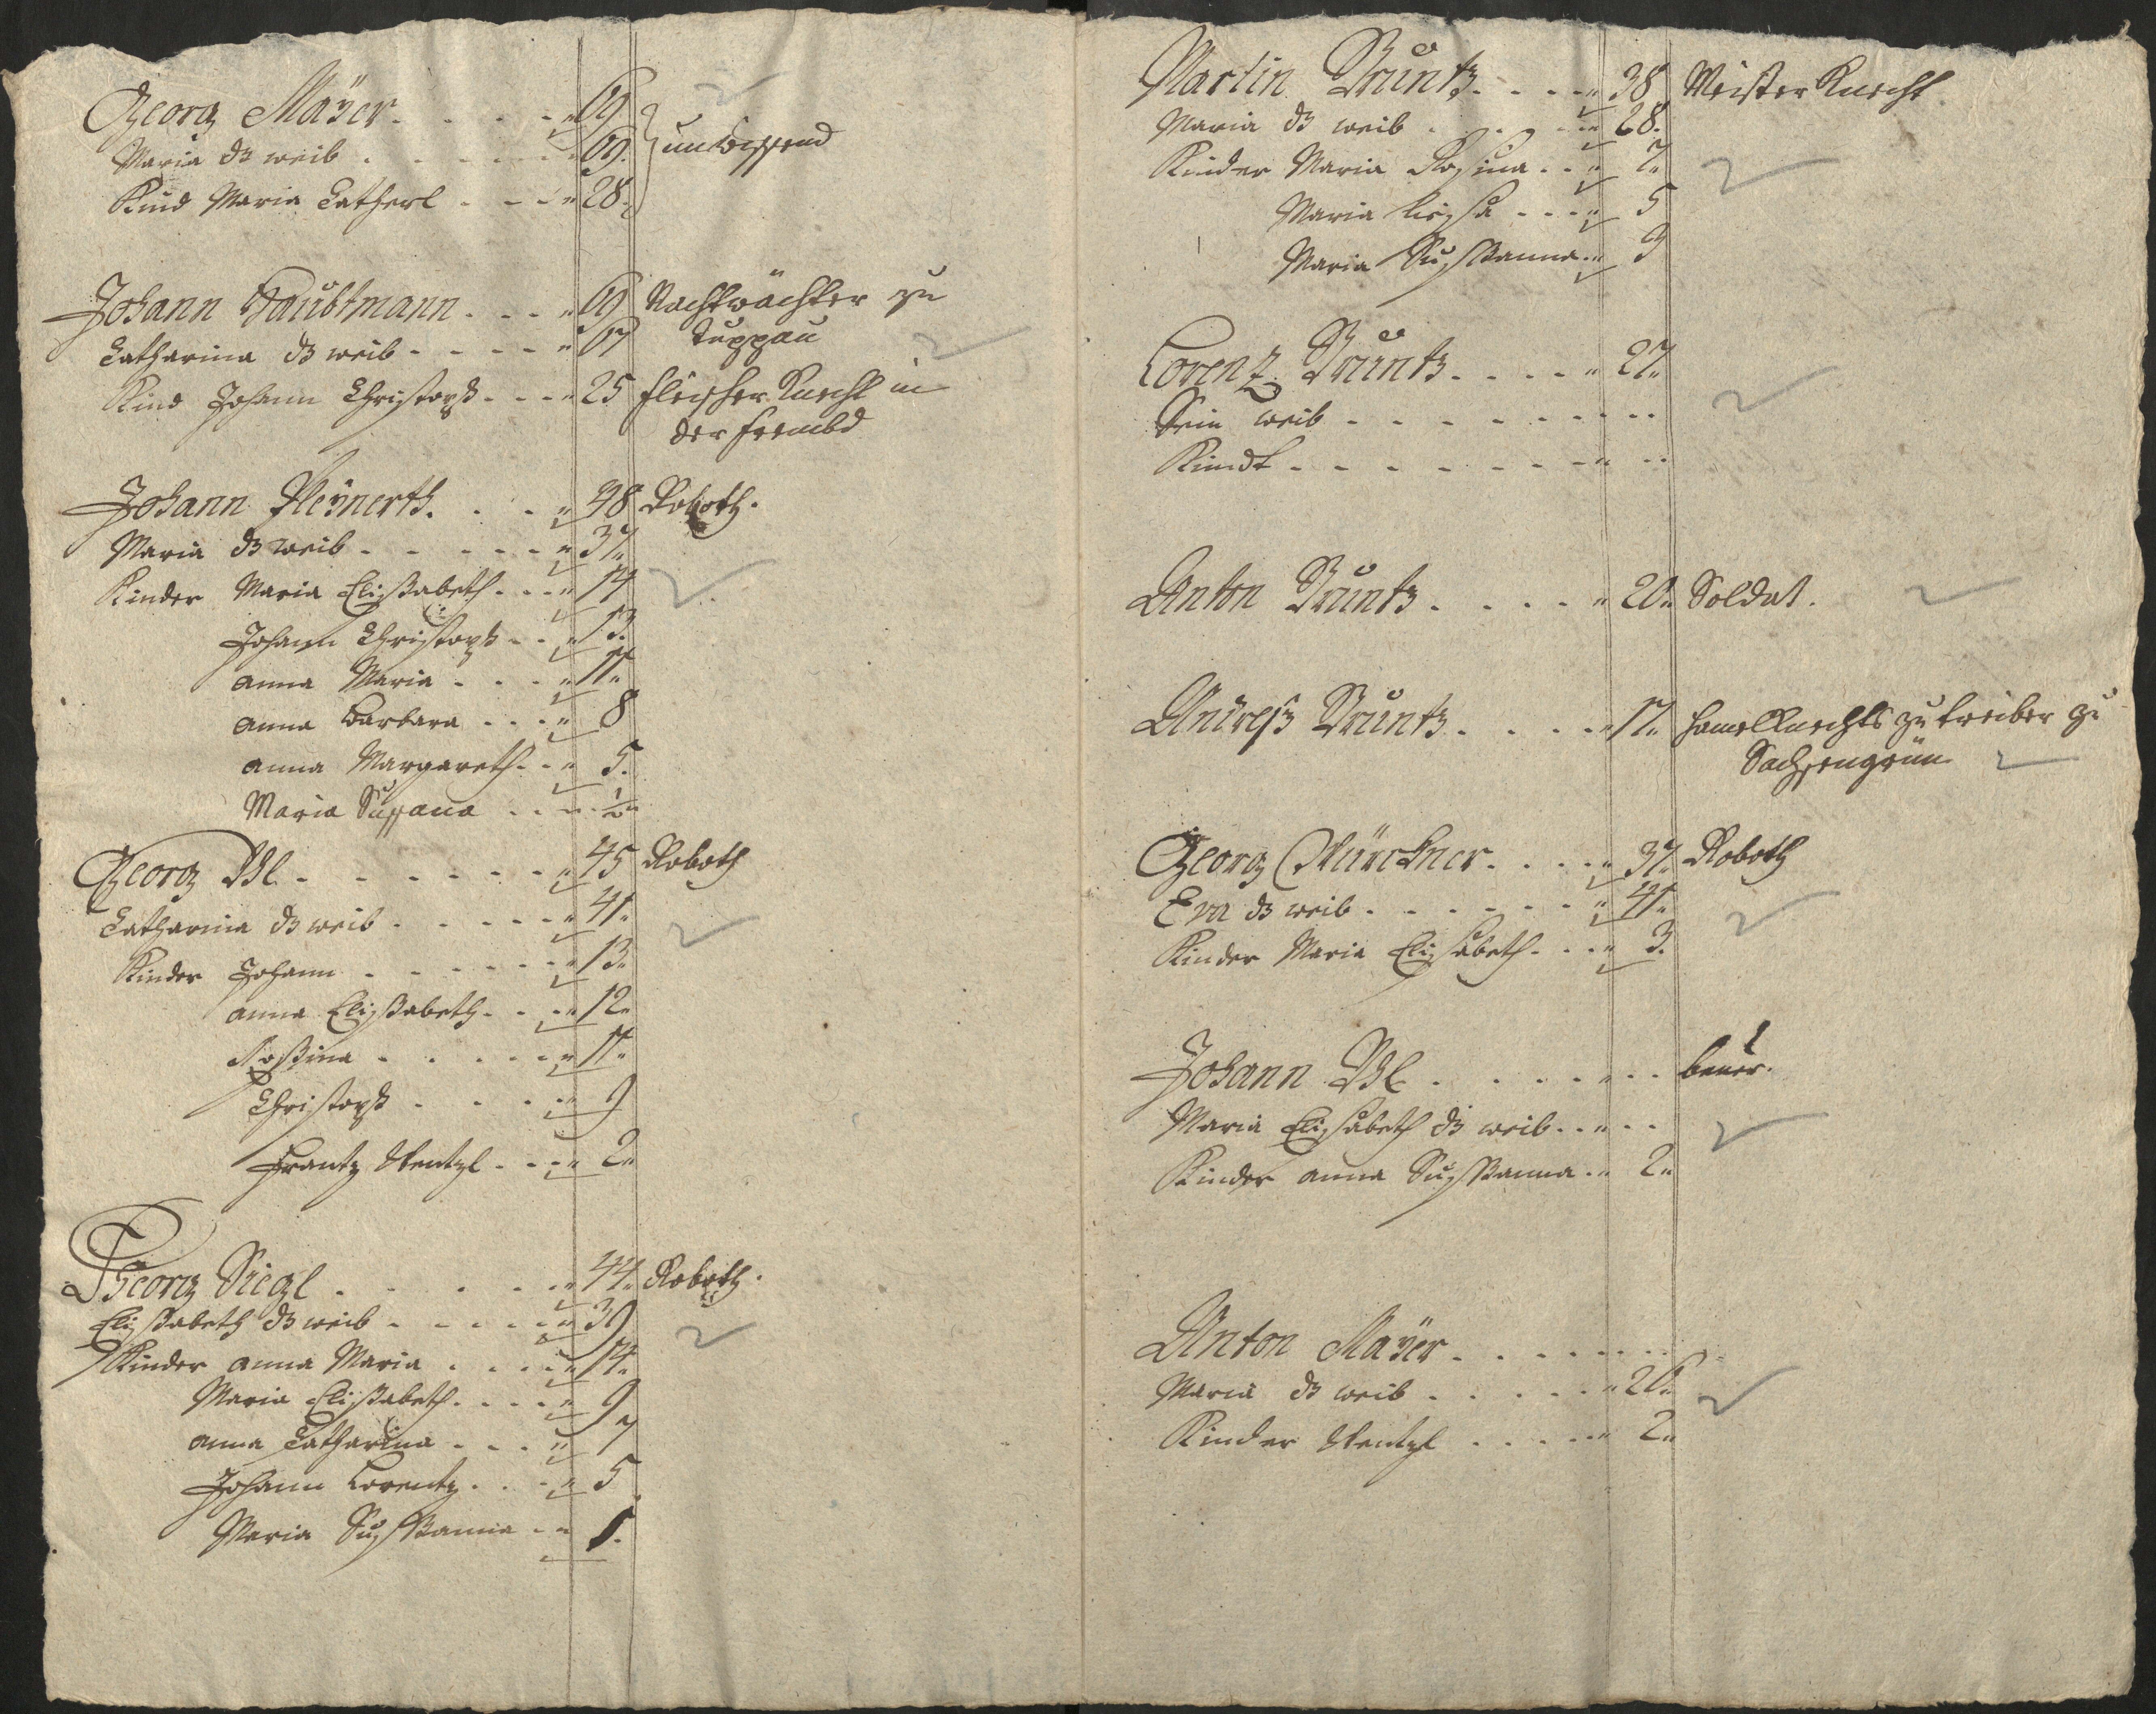 Georg Mäyer . . . . 69
Maria dß weib . . . . . 69.
Kind Maria Catherl . . . 28.
unwissend
Johann Haubtmann . . . 69 Nachtwächter zu
Catharina dß weib . . . . 67 Duppau
Kind Johann Christoph . . . 25 fleischer Knecht in
der frembd
Johann Pleÿnerth . . . 48 Roboth.
Maria dß weib . . . . . 37.
Kinder Maria Elißabeth . . . 14
Johann Christoph . . . 13.
anna Maria . . . . 11.
anna Barbara . . . 8
anna Margareth . . . 5.
Maria Sussana . . . ½
Georg Bl . . . . . . 45 Roboth
Catharina dß weib . . . . . 41.
Kinder Johann . . . . . . 13.
anna Elißabeth . . . 12.
Roßina . . . . . 11.
Christoph . . . . 9
Frantz Wentzl . . . 2.
Georg Siegl . . . . . . 44. Roboth.
Elißabeth dß weib . . . . . 39
Kinder anna Maria . . . . 14.
Maria Elißabeth . . . . 9
anna Catharina . . . . 7
Johann Lorentz . . . 5
Maria Sußanna . . 1.
Martin Bruntz . . . . 38 Meister Knecht
Maria dß weib . . . . 28.
Kinder Maria Rosina . . . 7.
Maria liesl . . . 5
Maria Sußanna . . 3
Lorenz Bruntz . . . . . 27.
Sein weib . . . . . . . .
Kindt . . . . . . . . .
Anton Bruntz . . . . . 20. Soldat.
Andreß Bruntz . . . . 17. zu treiber zu
Sachsengrün
Georg Mürckner . . . . 37. Roboth
Eva dß weib . . . . . . 41.
Kinder Maria Elisabeth . . . 3.
Johann Bl . . . . . . . bauer.
Maria Elisabeth dß weib . . . . .
Kinder anna Sußanna . . 2.
Anton Mäyer . . . . . . .
Maria dß weib . . . . . 26.
Kinder Wentzl . . . . . 2.